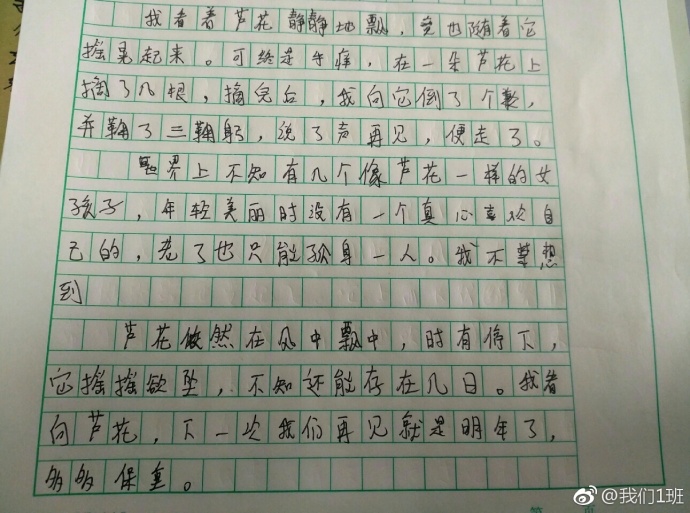 我看着芦花静静地飘,竟也随着它
摇晃起来。可终是手痒,在一朵芦花上
摘了几根,摘完后,我向它倒了个歉,
并鞠了三鞠躬,说了声再见,便走了。
世界上不知有几个像芦花一样的女
孩子,年轻美丽时没有一个真心喜欢自
己的,老了也只能孤身一人。我不禁想
到
芦花依然在风中飘中,时有停下,
它摇摇欲坠,不知还能存在几日。我看
向芦花,下一次我们再见就是明年了,
多多保重。
@我们1班